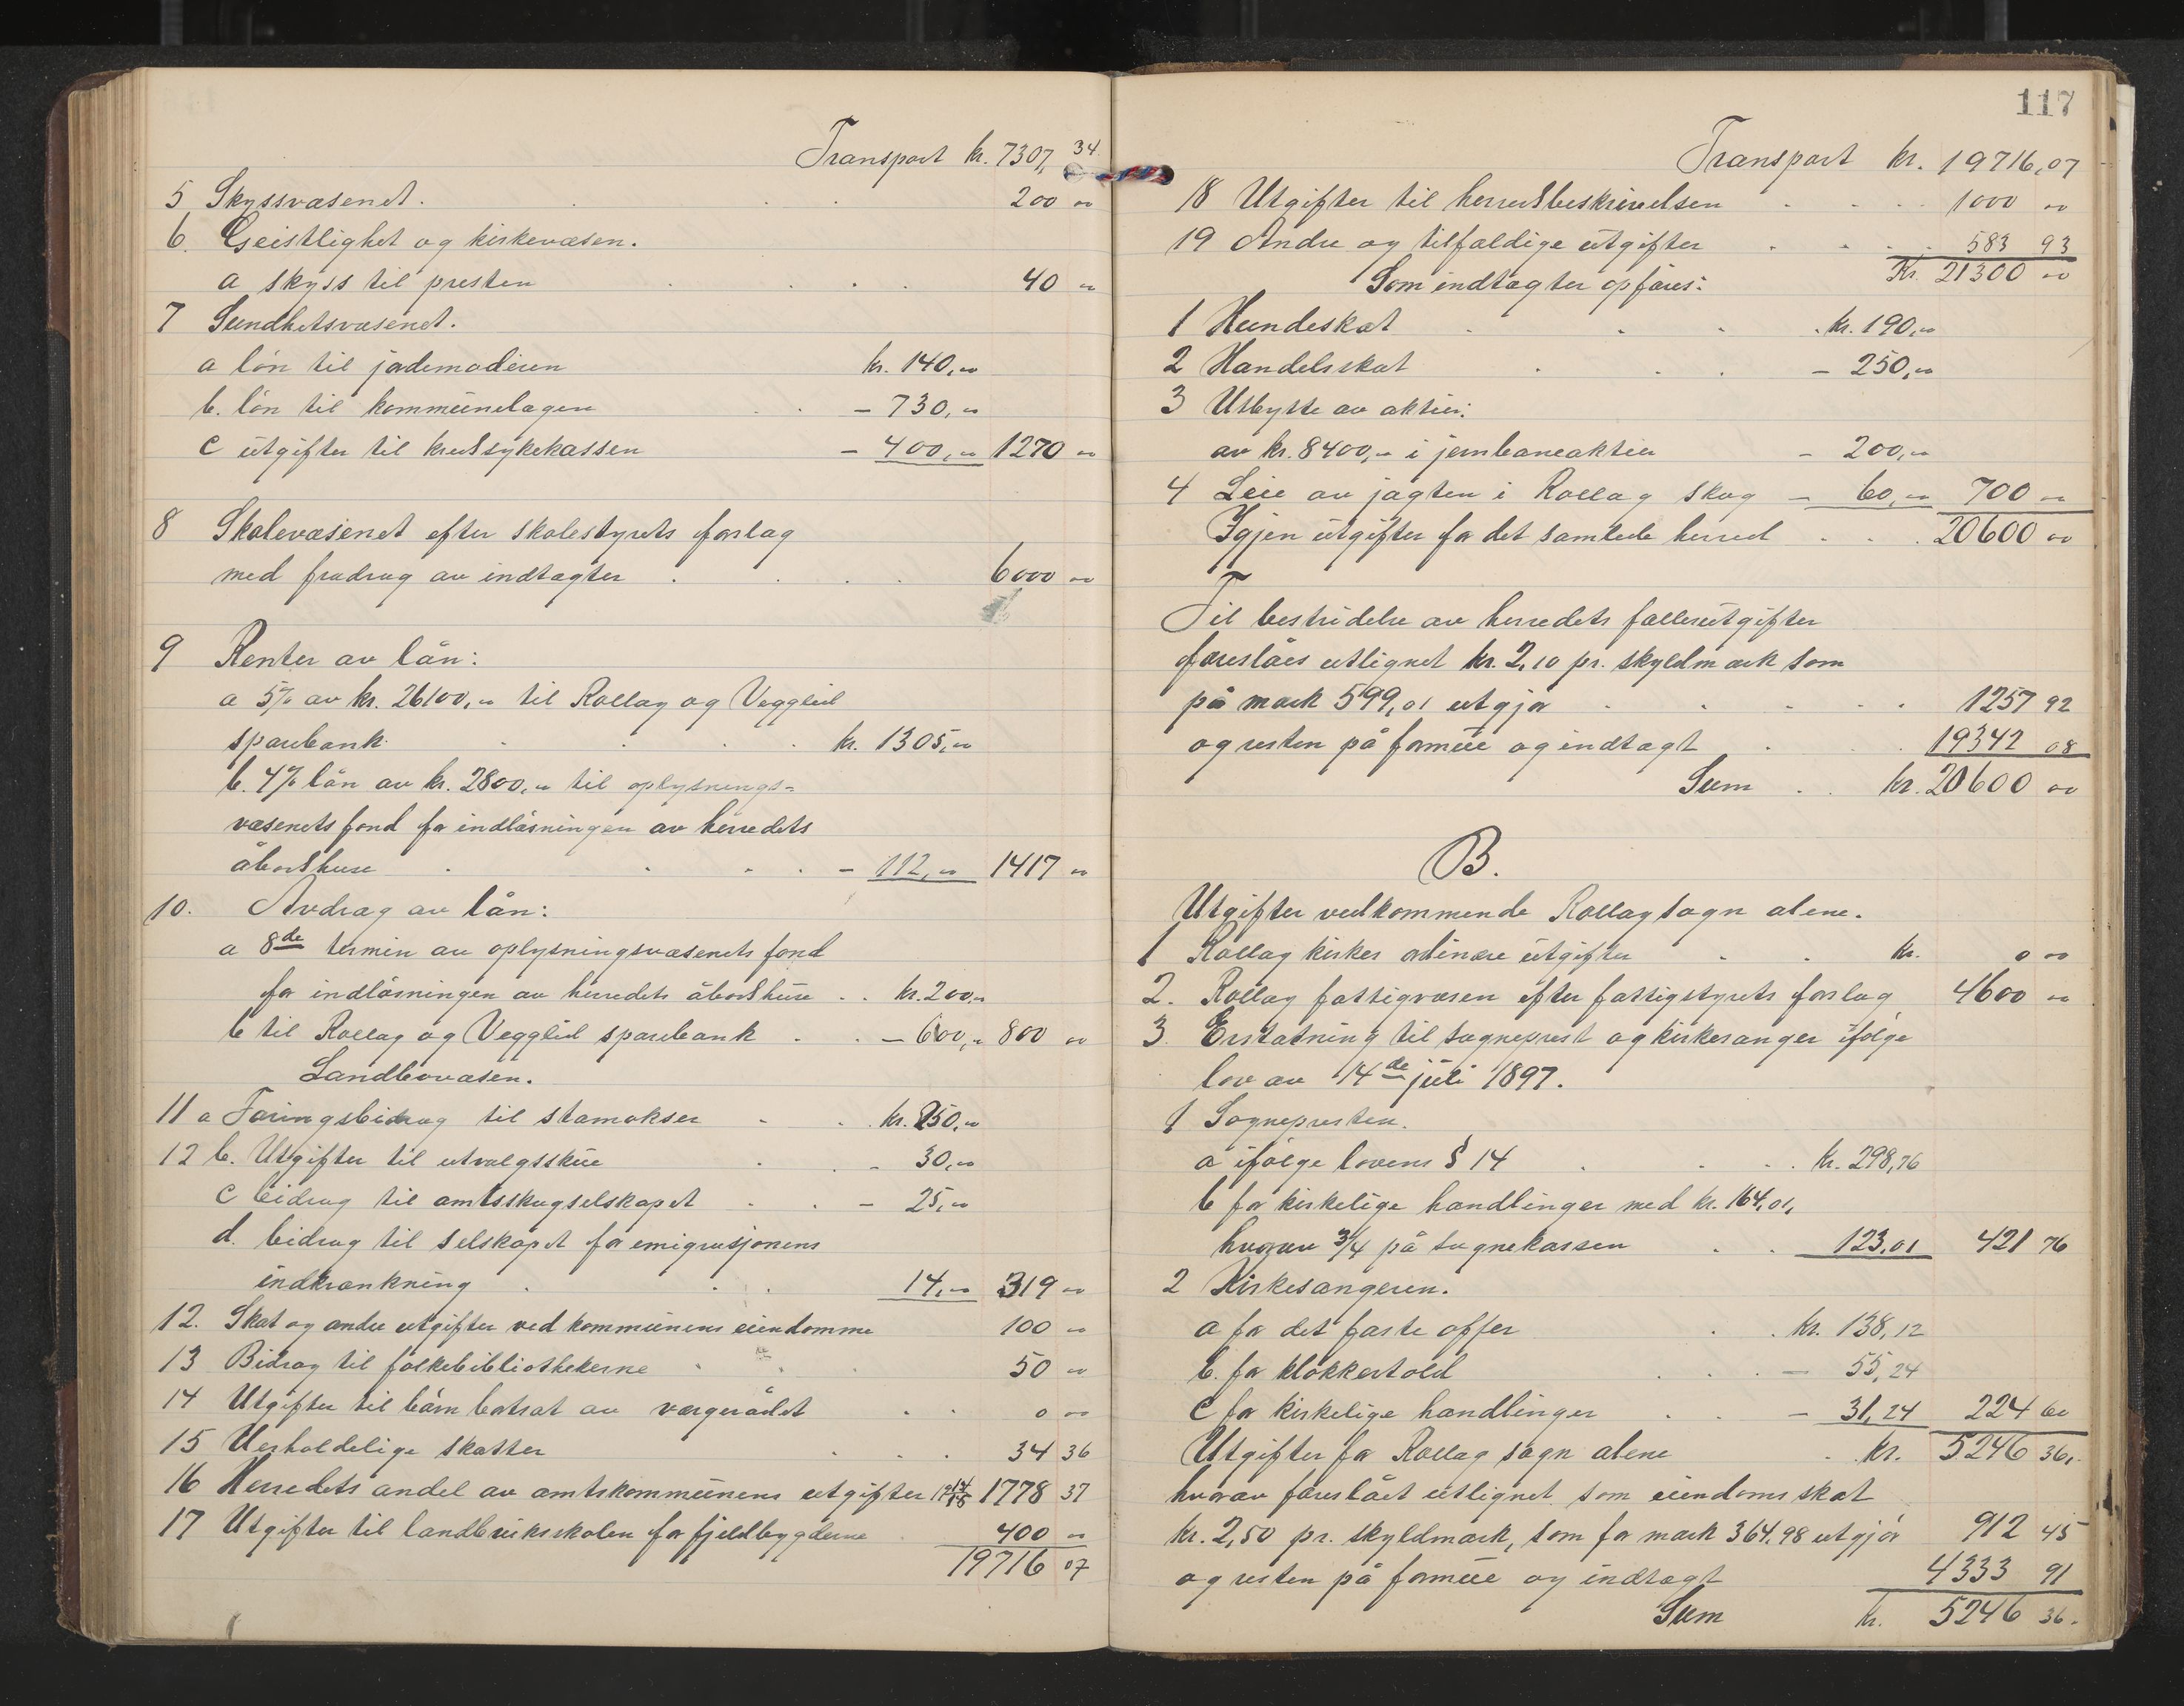 Transport kr. 7307, 34
5 Skyssvæsenet. 200 "
6. Geistlighet og kirkevæsen.
a skyss til presten 40 "
7 Sundhetsvæsenet.
a lön til jordemoderen kr. 140, "
b. lön til kommunelægen - 730, "
c utgifter til kredssykekassen - 400, " 1270 "
8 Skolevæsenet efter skolestyrets forslag
med fradrag av indtægter 6000 "
9 Renter av lån:
a 5% av kr. 26100, " til Rollag og Vegglid
sparebank. kr. 1305, "
b. 4% lån av kr. 2800, " til oplysnings-
væsenets fond for indlösningen av herredets
åbodshuse - 112, " 1417 "
10. Avdrag av lån:
a 8de termin av oplysningsvæsenets fond
for indlösningen av herredets åbodshuse kr. 200, "
b til Rollag og Vegglid sparebank - 600, " 800 "
Landbovæsen.
11 a Foringsbidrag til stamokser kr. 250, "
12 b. Utgifter til utvalgsskue - 30, "
c bidrag til amtsskogselskapet - 25, "
d. bidrag til selskapet for emigrasjonens
indkrænkning 14, " 319 "
12. Skat og andre utgifter ved kommunens eiendomme 100 "
13 Bidrag til folkebibliothekerne 50 "
14 Utgifter til börn bortsat av vergerådet 0 "
15 Uerholdelige skatter 34 36
16 Herredets andel av amtskommunens utgifter 1914/15 1778 37
17 Utgifter til landbruksskolen for fjeldbygderne 400 "
19716 07
117
Transport kr. 19716,07
18 Utgifter til herredsbeskrivelsen 1000 "
19 Andre og tilfældige utgifter 583 93
Kr. 21300 "
Som indtægter opföres:
1 Hundeskat kr. 190, "
2 Handelsskat - 250, "
3 Utbytte av aktier:
av kr. 8400, " i jernbaneaktier - 200, "
4 Leie av jagten i Rollag skog - 60, " 700 "
Igjen utgifter for det samlede herred 20600 "
Til bestridelse av herredets fællesutgifter
foreslåes utlignet kr. 2,10 pr. skyldmark som
på mark 599,01 utgjör 1257 92
og resten på formue og indtægt 19342 08
Sum kr. 20600 "
B.
Utgifter vedkommende Rollag sogn alene.
1 Rollag kirkes ordinære utgifter kr. 0 "
2. Rollag fattigvæsen efter fattigstyrets forslag 4600 "
3. Erstatning til sogneprest og kirkesanger ifölge
lov av 14de juli 1897.
1 Sognepresten.
a ifölge lovens § 14 kr. 298,76
b for kirkelige handlinger med kr. 164,01,
hvorav 3/4 på sognekassen 123,01 421 76
2 Kirkesangeren.
a for det faste offer kr. 138,12
b. for klokkertold - 55,24
c for kirkelige handlinger - 31,24 224 60
Utgifter for Rollag sogn alene kr. 5246 36.
hvorav foreslået utlignet som eiendomsskat
kr. 2,50 pr. skyldmark, som for mark 364,98 utgjör 912 45
og resten på formue og indtægt 4333 91
Sum kr. 5246 36.